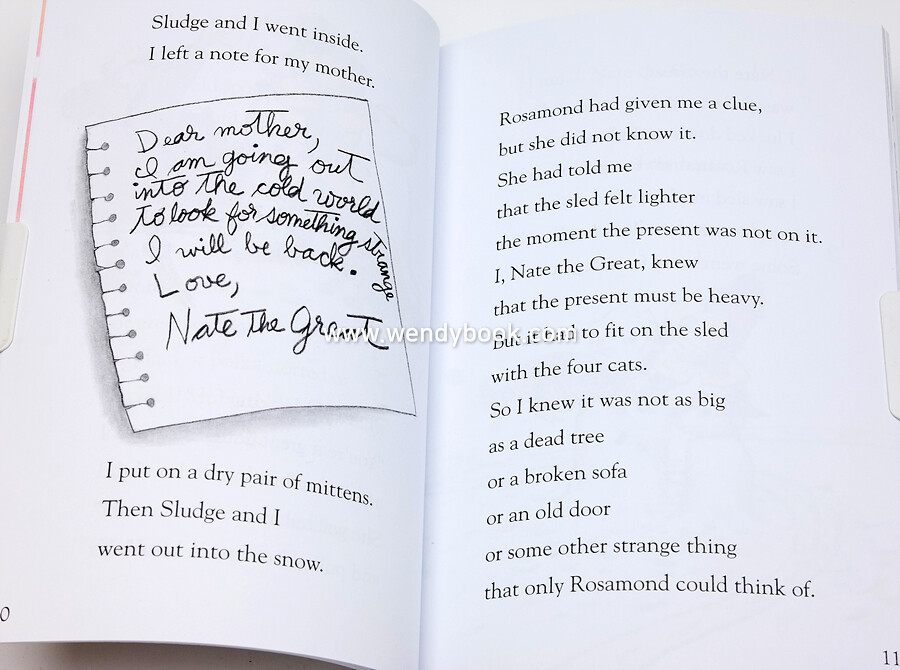 Sludge and I went inside.
I left a note for my mother.
Dear mother,
I am going out
into the cold world
to look for something strange
I will be back.
Love,
Nate the Great
I put on a dry pair of mittens.
Then Sludge and I
went out into the snow.
0
Rosamond had given me a clue,
but she did not know it.
She had told me
that the sled felt lighter
the moment the present was not on it.
I, Nate the Great, knew
that the present must be heavy.
But it had to fit on the sled
with the four cats.
So I knew it was not as big
as a dead tree
or a broken sofa
or an old door
or some other strange thing
that only Rosamond could think of.
11
www.wendybook.com